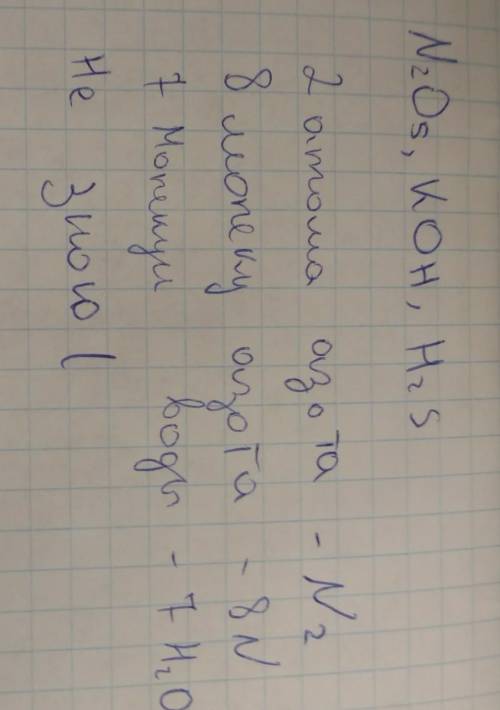 N₂O₅, KOH, H₂S
2 атома азота - N₂
8 молекул азота - 8N
7 молекул воды - 7H₂O
Не знаю (